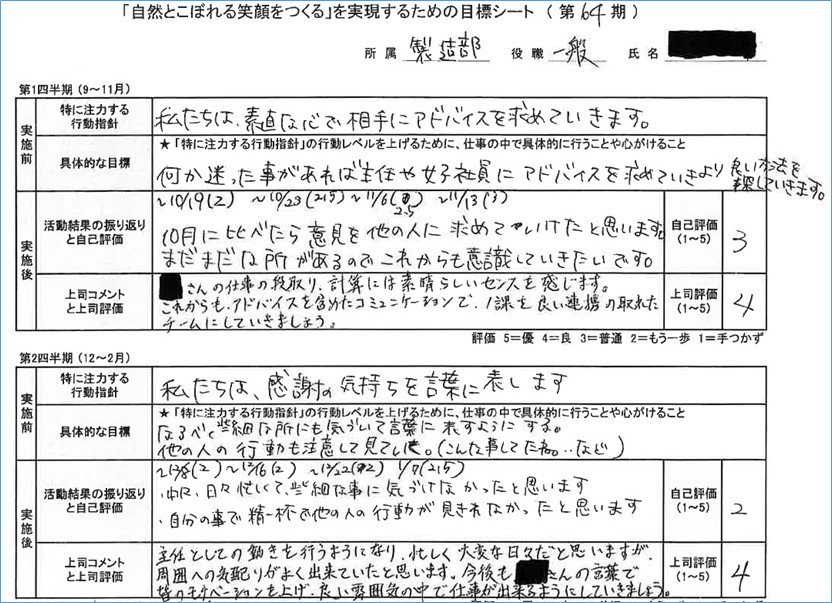 「自然とこぼれる笑顔をつくる」を実現するための目標シート ( 第64期 )
所属 製造部 役職 一般 氏名
第1四半期 (9～11月)
実施前
特に注力する行動指針
私たちは、素直な心で相手にアドバイスを求めていきます。
具体的な目標
★「特に注力する行動指針」の行動レベルを上げるために、仕事の中で具体的に行うことや心がけること
何か迷った事があれば主任や女子社員にアドバイスを求めていきより良い方法を
探していきます。
実施後
活動結果の振り返りと自己評価
~10/19(2) ~10/23(2.5) ~11/6(2.5) ~11/13(3)
10月に比べたら意見を他の人に求めていけたと思います。
まだまだな所があるのでこれからも意識していきたいです。
自己評価
(1～5)
3
上司コメントと上司評価
さんの仕事の段取り、計算には素晴らしいセンスを感じます。
これからも、アドバイスを含めたコミュニケーションで、1課を良い連携の取れた
チームにしていきましょう。
上司評価
(1～5)
4
評価 5＝優 4＝良 3＝普通 2＝もう一歩 1＝手つかず
第2四半期 (12～2月)
実施前
特に注力する行動指針
私たちは、感謝の気持ちを言葉に表します
具体的な目標
★「特に注力する行動指針」の行動レベルを上げるために、仕事の中で具体的に行うことや心がけること
なるべく些細な所にも気づいて言葉に表すようにする。
他の人の行動も注意して見ていく。(こんな事してたね。..など)
実施後
活動結果の振り返りと自己評価
~12/16(2) 1/7(2.5)
・中々、日々忙しくて、些細な事に気づけなかったと思います
・自分の事で精一杯で他の人の行動が見きれなかったと思います
自己評価
(1～5)
2
上司コメントと上司評価
主任としての動きを行うようになり、忙しく大変な日々だと思いますが、
周囲への気配りがよく出来ていたと思います。今後も さんの言葉で
皆のモチベーションを上げ、良い雰囲気の中で仕事が出来るようにしていきましょう。
上司評価
(1～5)
4